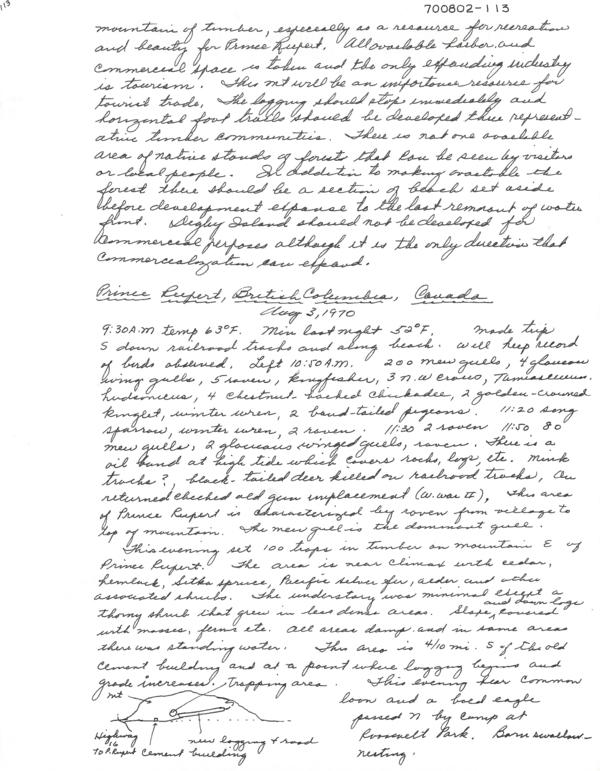 113
700802-113
mountain of timber, especially as a resource for recreation
and beauty for Prince Rupert. All available harbor and
commercial space is taken and the only expanding industry
is tourism. This mt will be an importance resource for
tourist trade. The logging should stop immediately and
horizontal foot trails should be developed thru represent-
ative timber communities. There is not one available
area of native stands of forests that can be seen by visitors
or local people. In addition to making available the
forest there should be a section of beach set aside
before development expanse to the last remnant of water
front. Digby Island should not be developed for
commercial purposes although it is the only direction that
commercialization can expand.
Prince Rupert, British Columbia, Canada
Aug 3, 1970
9:30 A.M temp 63°F. Min last night 52°F. Made trip
S down railroad tracks and along beach. Will keep record
of birds observed. Left 10:50 A.M. 200 mew gulls, 4 glaucous
wing gulls, 5 raven, kingfisher, 3 n.w crows, Tamiasciurus
hudsonicus, 4 chestnut backed chickadee, 2 golden-crowned
kinglet, winter wren, 2 band-tailed pigeons. 11:20 song
sparrow, winter wren, 2 raven. 11:30 2 raven 11:50 80
mew gulls, 2 glaucous winged gulls, raven. There is a
oil band at high tide which covers rocks, logs, etc. Mink
tracks?, black-tailed deer killed on railroad tracks, On
returned checked old gun implacement (W. War II), This area
of Prince Rupert is characterized by raven from village to
top of mountain. The mew gull is the dominant gull.
This evening set 100 traps in timber on mountain E of
Prince Rupert. The area is near climax with cedar,
hemlock, Sitka spruce, Pacific silver fir, alder, and other
associated shrubs. The understory was minimal except a
thorny shrub that grew in less dense areas. Slope, and down logs covered
with mosses, ferns etc. All areas damp and in some areas
there was standing water. This area is 4/10 mi. S of the old
cement building and at a point where logging begins and
grade increases. trapping area. This evening hear common
mt
loon and a bald eagle
passed N by camp at
Roosevelt Park. Barn swallow-
nesting.
Highway
16
TO P. Rupert
cement building
new logging + road